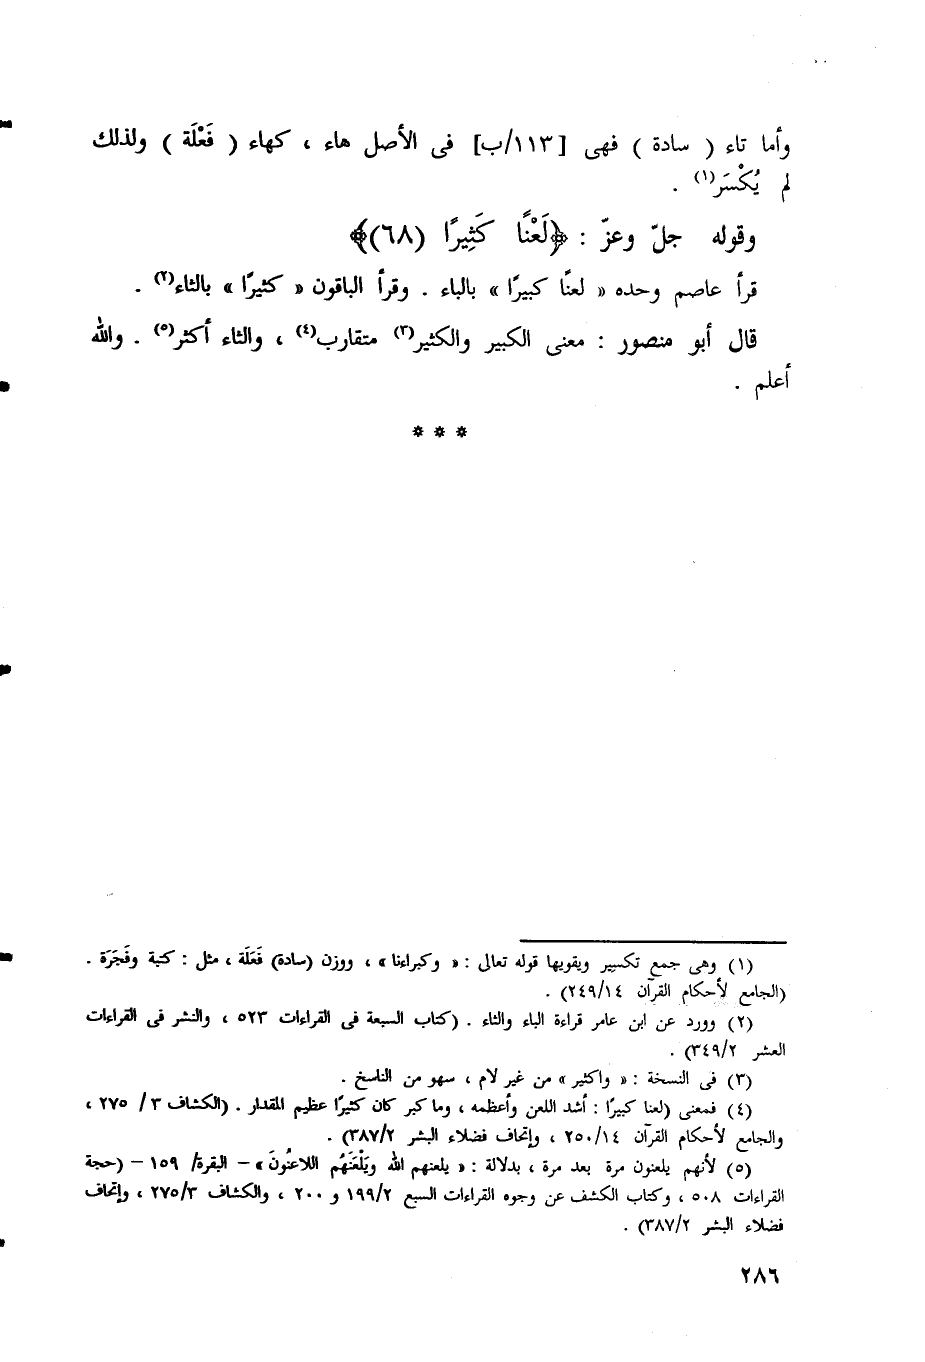 وأما تاء ( سادة ) فهى [١١٣/ب] فى الأصل هاء ، كهاء ( فَعْلَة ) ولذلك
لم يُكْسَر(١) .
وقوله جلّ وعزّ : ﴿لَعْنًا كَثِيرًا (٦٨)﴾
قرأ عاصم وحده « لعنًا كبيرًا » بالباء . وقرأ الباقون « كثيرًا » بالثاء(٢) .
قال أبو منصور : معنى الكبير والكثير(٣) متقارب(٤) ، والثاء أكثر(٥) . والله
أعلم .
* * *
(١) وهى جمع تكسير ويقويها قوله تعالى : « وكبراءنا » ، ووزن (سادة) فَعَلَة ، مثل : كتبة وفَجَرَة .
(الجامع لأحكام القرآن ٢٤٩/١٤) .
(٢) وورد عن ابن عامر قراءة الباء والثاء . (كتاب السبعة فى القراءات ٥٢٣ ، والنشر فى القراءات
العشر ٣٤٩/٢) .
(٣) فى النسخة : « واكثير » من غير لام ، سهو من الناسخ .
(٤) فمعنى (لعنا كبيرًا : أشد اللعن وأعظمه ، وما كبر كان كثيرًا عظيم المقدار . (الكشاف ٣ / ٢٧٥ ،
والجامع لأحكام القرآن ٢٥٠/١٤ ، وإتحاف فضلاء البشر ٣٨٧/٢) .
(٥) لأنهم يلعنون مرة بعد مرة ، بدلالة : « يلعنهم الله ويَلْعَنَهُم اللاعنُونَ » – البقرة/ ١٥٩ – (حجة
القراءات ٥٠٨ ، وكتاب الكشف عن وجوه القراءات السبع ١٩٩/٢ و ٢٠٠ ، والكشاف ٢٧٥/٣ ، وإتحاف
فضلاء البشر ٣٨٧/٢) .
٢٨٦